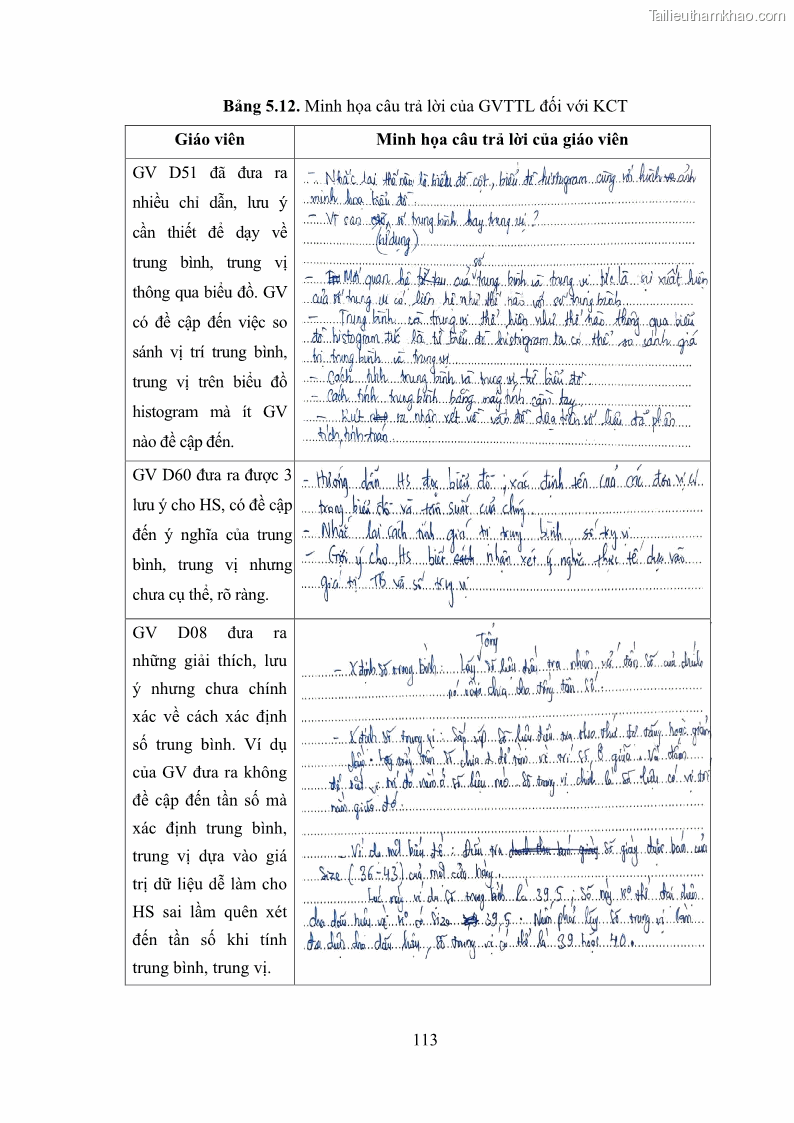 Tailieuthamkhao.com
Bảng 5.12. Minh họa câu trả lời của GVTTL đối với KCT
Giáo viên
Minh họa câu trả lời của giáo viên
GV D51 đã đưa ra
nhiều chỉ dẫn, lưu ý
cần thiết để dạy về
trung bình, trung vị
thông qua biểu đồ. GV
có đề cập đến việc so
sánh vị trí trung bình,
trung vị trên biểu đồ
histogram mà ít GV
nào đề cập đến.
- Nhắc lại thế nào là biểu đồ cột, biểu đồ histogram cùng với hình ảnh
minh họa biểu đồ
- Vì sao số trung bình hay trung vị?
(sử dụng)
số
- Mối quan hệ của trung bình và trung vị tức là sự xuất hiện
của số trung vị có liên hệ như thế nào với số trung bình
- Trung bình và trung vị thể hiện như thế nào thông qua biểu
đồ histogram tức là từ biểu đồ histogram ta có thể so sánh giá
trị trung bình và trung vị
- Cách tính trung bình và trung vị từ biểu đồ
- Cách tính trung bình bằng máy tính cầm tay
- Rút ra nhận xét về vấn đề dựa trên số liệu đã phân
tích, tính toán
GV D60 đưa ra được 3
lưu ý cho HS, có đề cập
đến ý nghĩa của trung
bình, trung vị nhưng
chưa cụ thể, rõ ràng.
- Hướng dẫn HS đọc biểu đồ, xác định tên của các đơn vị có
trong biểu đồ và tần suất của chúng
- Nhắc lại cách tính giá trị trung bình, số trg vị
- Gợi ý cho HS biết nhận xét ý nghĩa thực tế dựa vào
giá trị TB và số trg vị
GV D08 đưa ra
những giải thích, lưu
ý nhưng chưa chính
xác về cách xác định
số trung bình. Ví dụ
của GV đưa ra không
đề cập đến tần số mà
xác định trung bình,
trung vị dựa vào giá
trị dữ liệu dễ làm cho
HS sai lầm quên xét
đến tần số khi tính
trung bình, trung vị.
Tổng
- Xđịnh số trung bình: Lấy số liệu điều tra nhân với tần số của chính
nó rồi chia cho tổng tần số.
- Xđịnh số trung vị: Sắp xếp số liệu điều tra theo thứ tự tăng hoặc giảm
dần. Lấy tổng tần số chia 2 để tìm vị trí số ở giữa
số liệu nào số trung vị chính là số liệu có vị trí
nằm giữa đó
- Ví dụ một biểu đồ: Điều tra số giày được bán của
Size (36-43) của một cửa hàng.
Lúc này ví dụ số trung bình là 39,5, số này k° thể đại diện
cho dấu hiệu vì k° có size 39,5. Nên phải lấy số trung vị làm
đại diện cho dấu hiệu, số trung vị có thể là 39 hoặc 40.
113